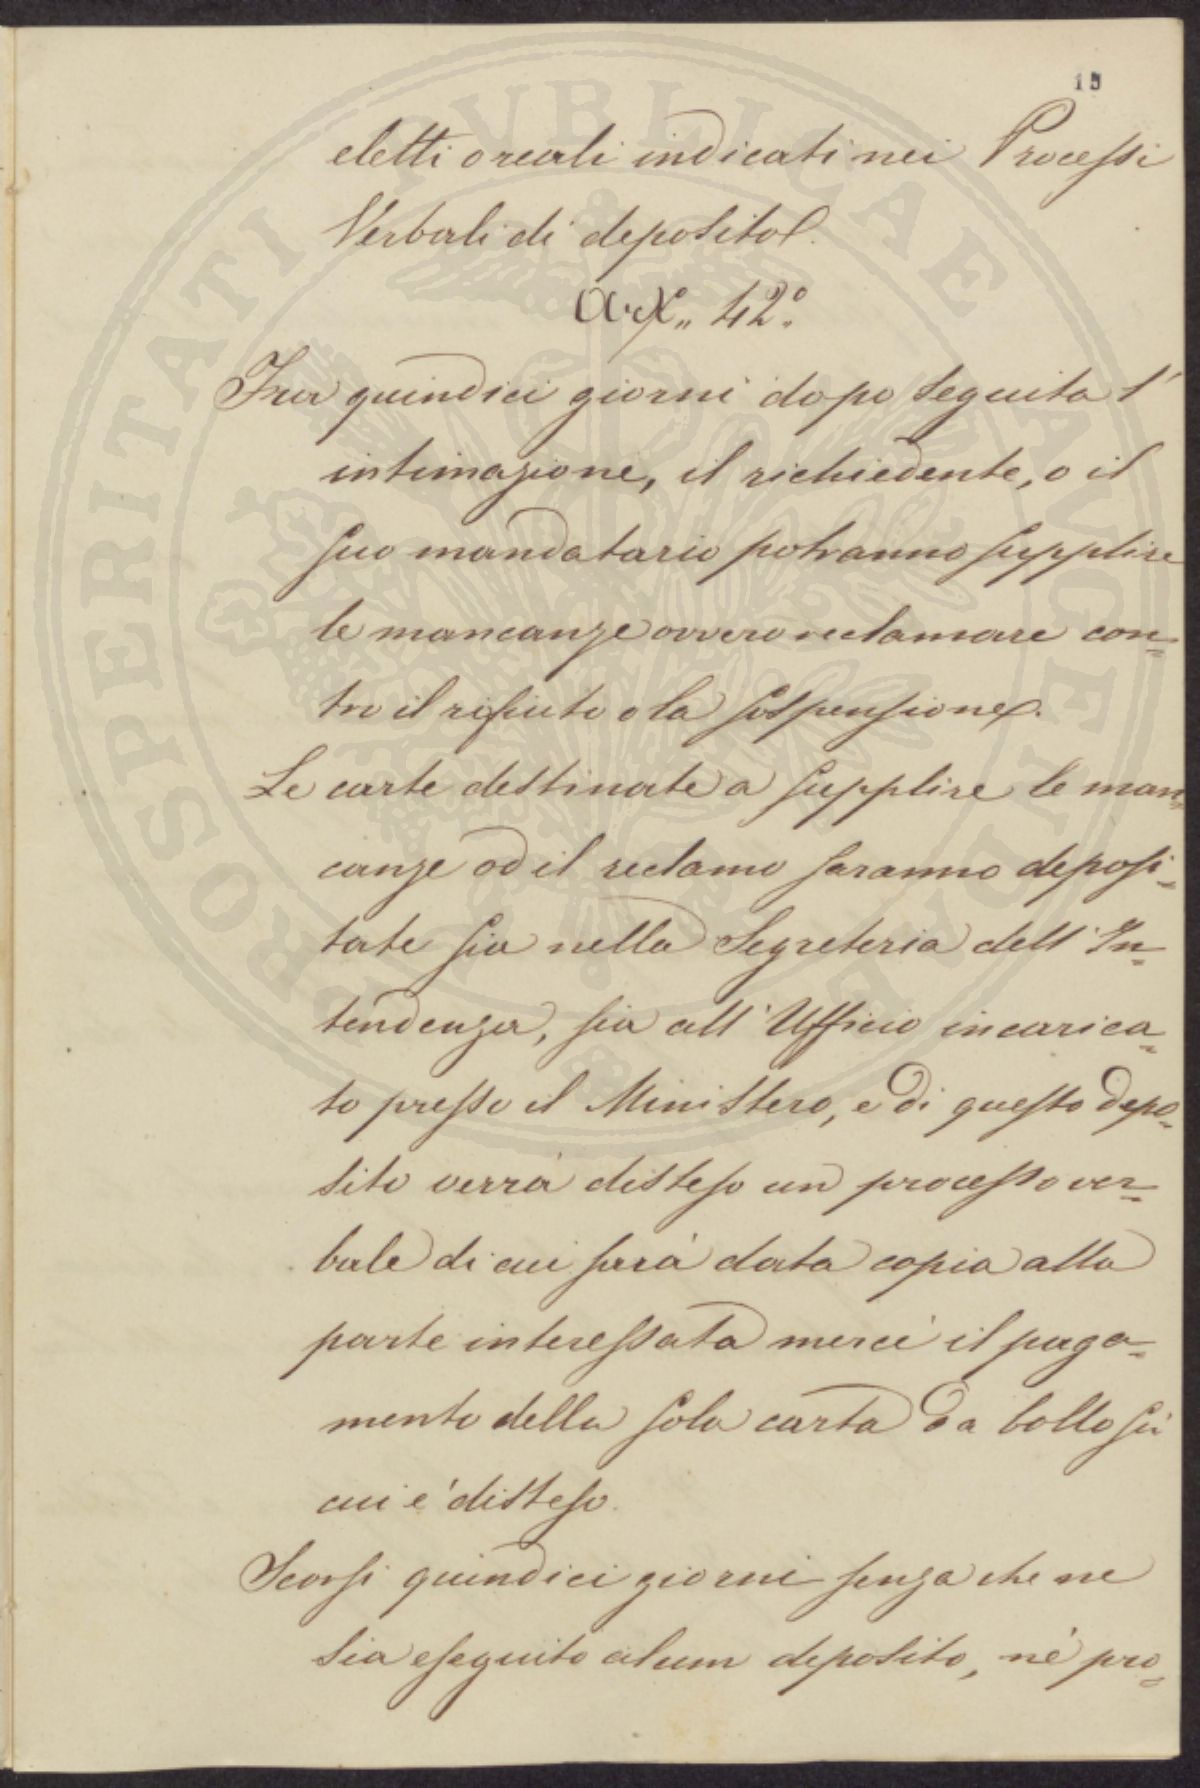 15
eletti o reali indicati nei Processi
Verbali di deposito.
Art.° 42°.
Fra quindici giorni dopo seguita l'
intimazione, il richiedente, o il
suo mandatario potranno supplire
le mancanze ovvero reclamare con=
tro il rifiuto o la sospensione.
Le carte destinate a supplire le man=
canze od il reclamo saranno deposi=
tate sia nella Segreteria dell' In=
tendenza, sia all' Ufficio incarica=
to presso il Ministero, e di questo depo=
sito verrà disteso un processo ver=
bale di cui sarà data copia alla
parte interessata mercè il paga=
mento della sola carta da bollo su
cui è disteso.
Scorsi quindici giorni senza che ne
sia eseguito alcun deposito, nè pro=
PROSPERITATI PVBLICAE AVGENDAE